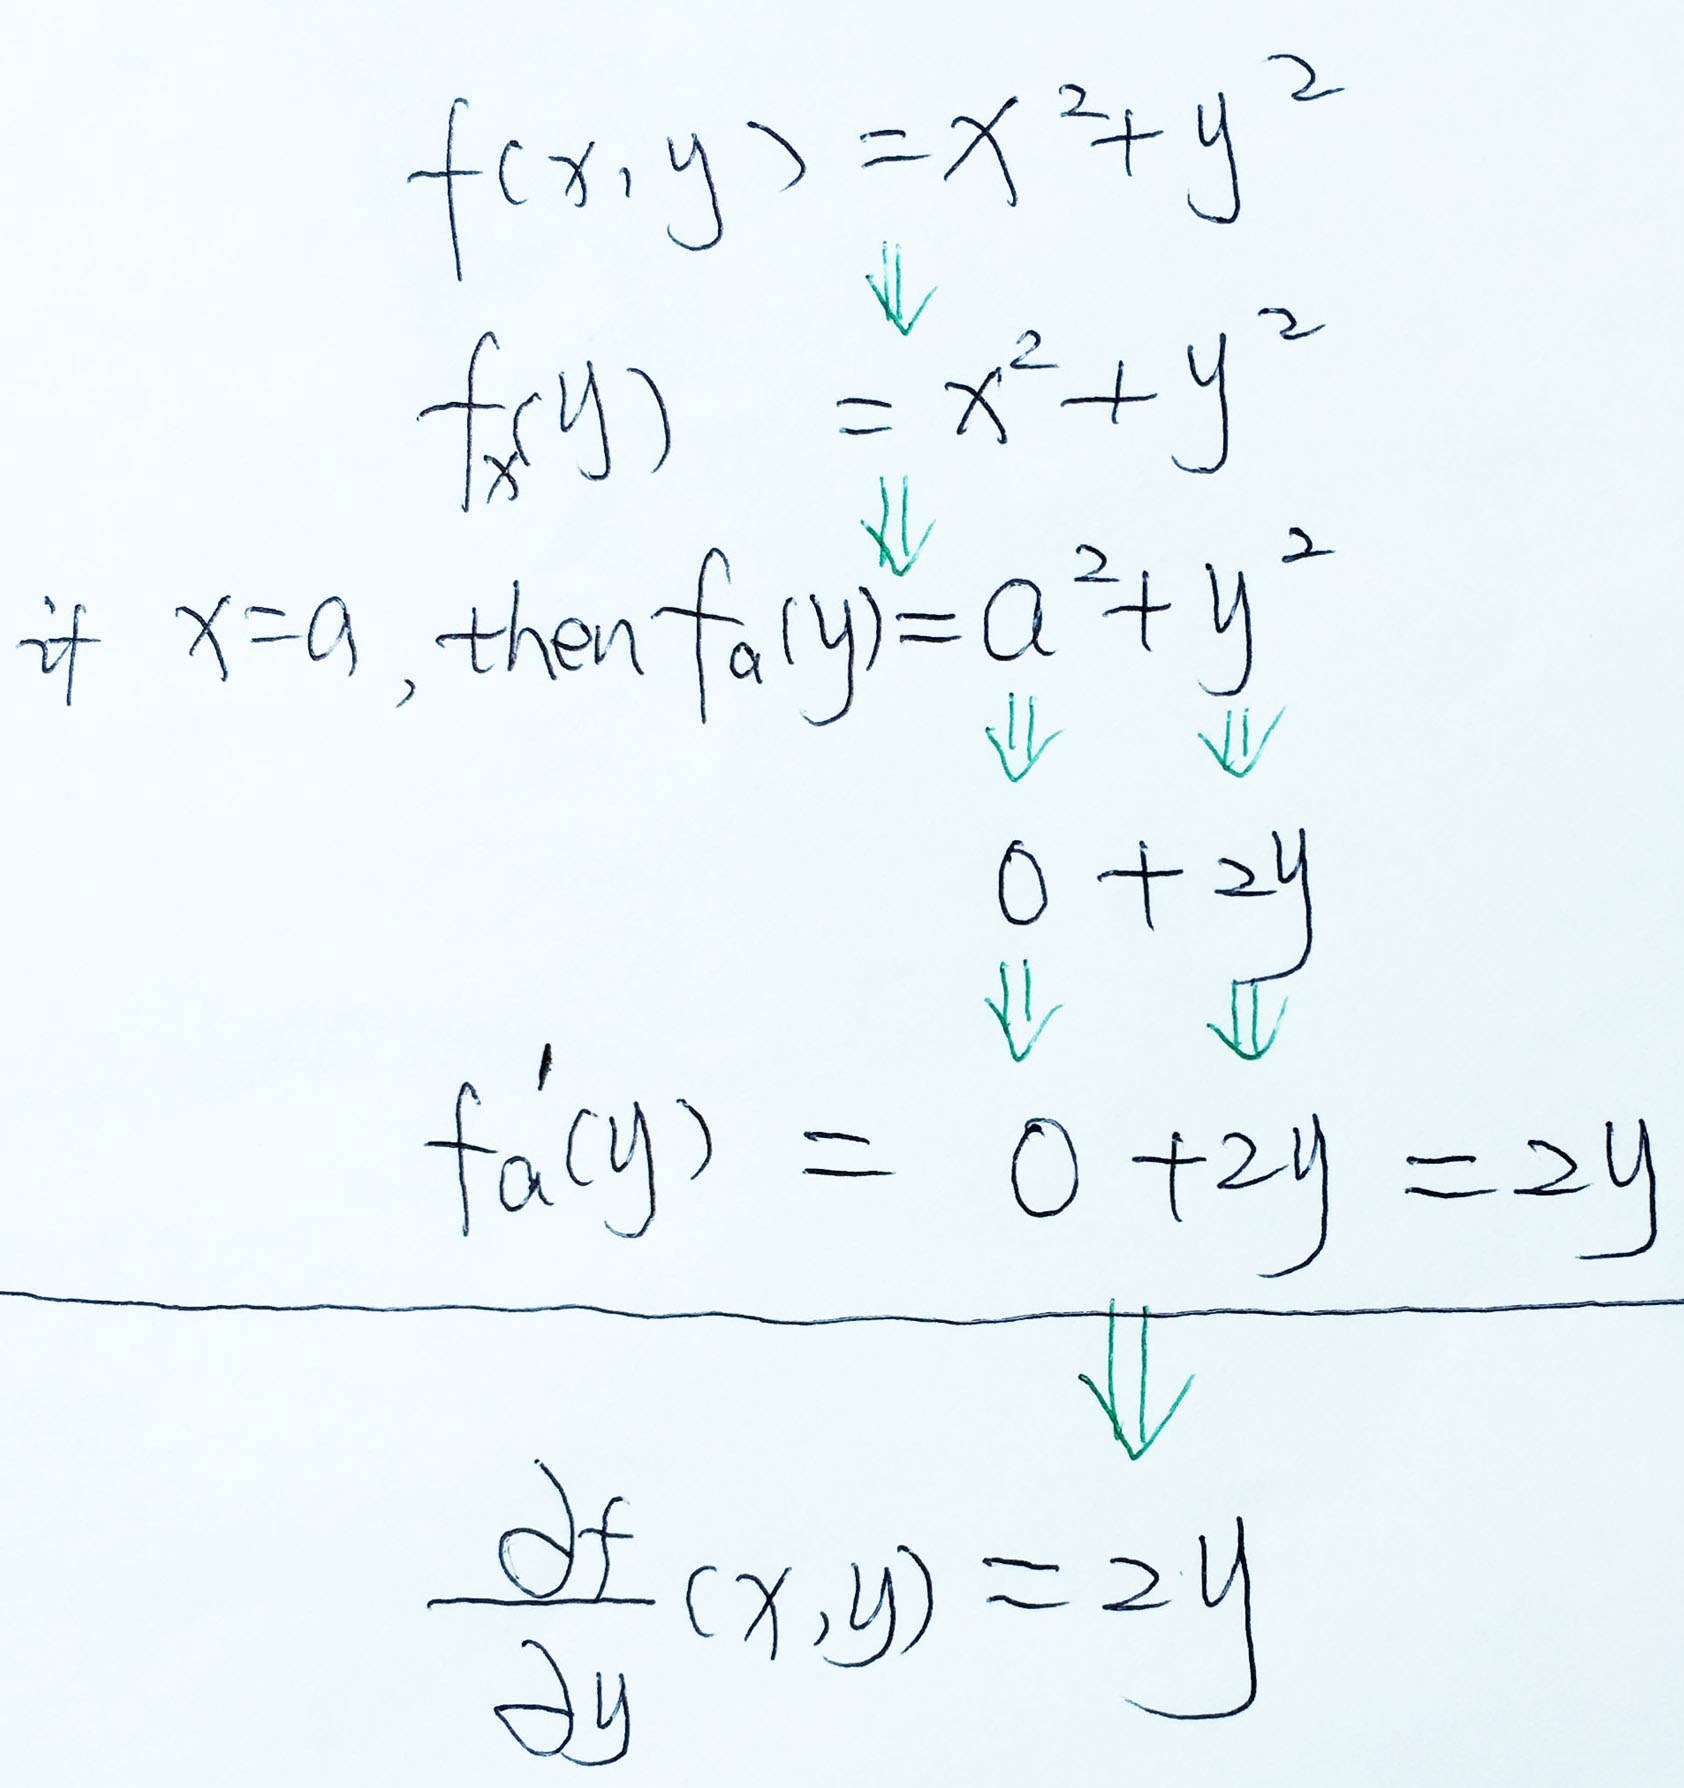 f(x,y) = x²+y²
⇓
fₓ(y) = x²+y²
⇓
if x=a, then fₐ(y)=a²+y²
⇓ ⇓
0 + 2y
⇓ ⇓
fₐ'(y) = 0 +2y = 2y
⇓
∂f/∂y (x,y) = 2y